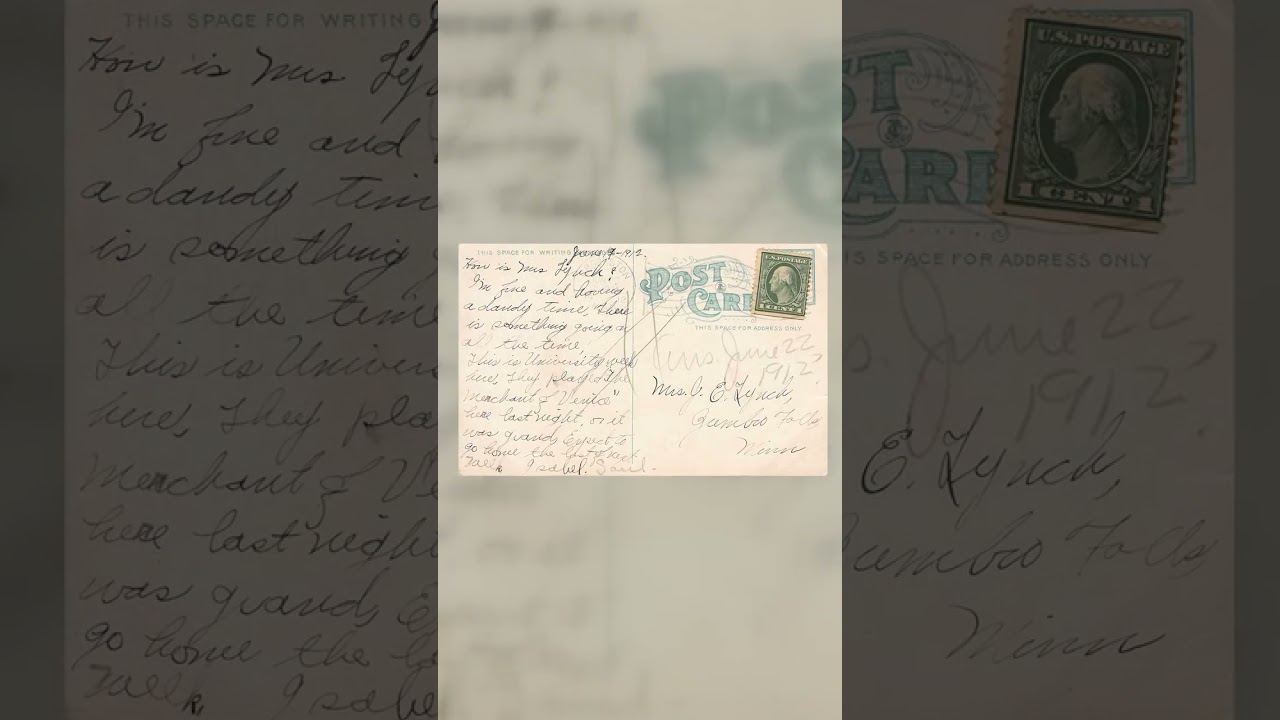 THIS SPACE FOR WRITING
June 9-1912
How is Mrs Lynch?
I'm fine and having
a dandy time, There
is something going on
al the time
This is University week
here, They played the
Merchant of Venice"
here last night, it
was grand, Expect to
go home the last of next
Isabel.
POST
&
CARD
U.S. POSTAGE
1 CENT 1
THIS SPACE FOR ADDRESS ONLY
Ans. June 22
1912
Mrs. J. E. Lynch,
Jumbro Falls
Minn